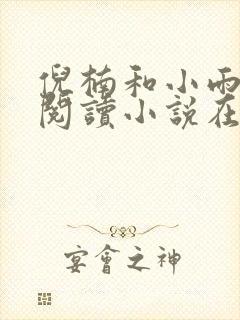 倪楠和小雨
閱讀小說在
宴會之神